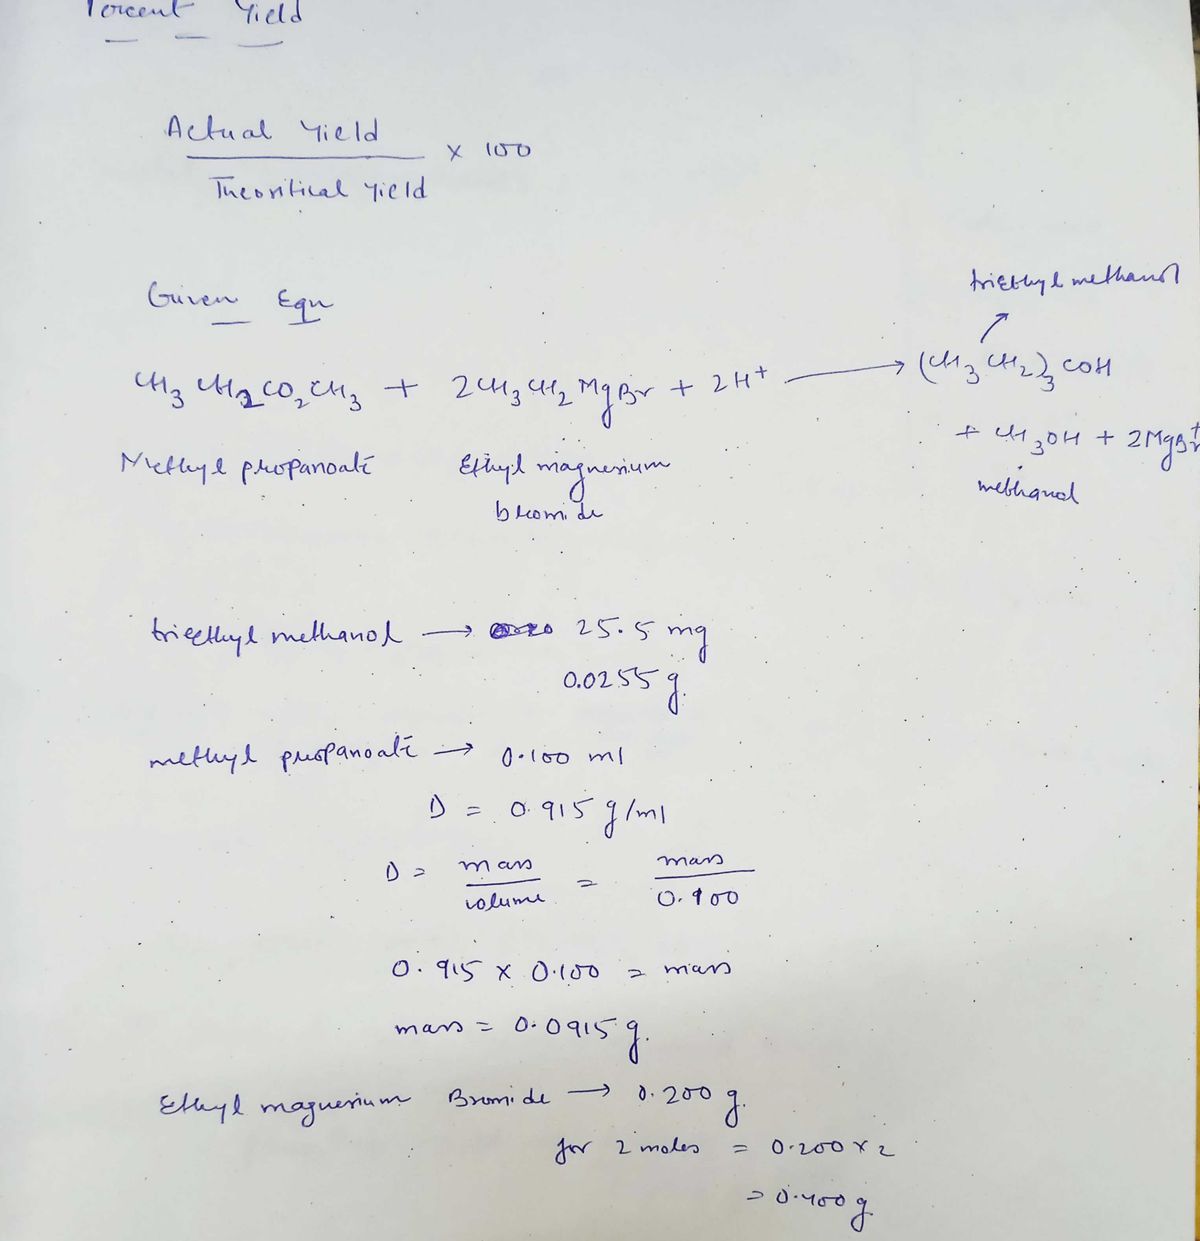 Percent Yield
Actual Yield
Theoritical Yield
x 100
Given Equ
triethyl methanol
CH3 CH2 CO2 CH3 + 2CH3 CH2 MgBr + 2H+ → (CH3 CH2)3 COH
+ CH3OH + 2MgBr+
Methyl propanoate Ethyl magnesium
bromide
methanol
triethyl methanol → 25.5 mg
0.0255 g.
methyl propanoate → 0.100 ml
D = 0.915 g/ml
D = mass / volume = mass / 0.100
0.915 x 0.100 = mass
mass = 0.0915 g.
Ethyl magnesium Bromide → 0.200 g.
for 2 moles = 0.200 x 2
= 0.400 g